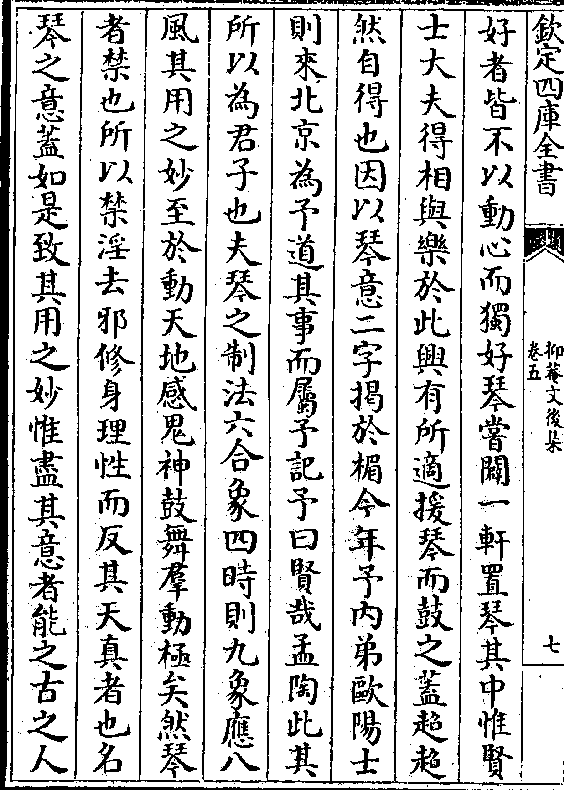 欽定四庫全書
抑菴文後集
卷五
七
好者皆不以動心而獨好琴嘗闢一軒置琴其中惟賢
士大夫得相與樂於此興有所適援琴而鼓之蓋超超
然自得也因以琴意二字揭於楣今年予内弟歐陽士
則來北京為予道其事而屬予記予曰賢哉孟陶此其
所以為君子也夫琴之制法六合象四時則九象應八
風其用之妙至於動天地感鬼神鼓舞羣動極矣然琴
者禁也所以禁淫去邪修身理性而反其天真者也名
琴之意蓋如是致其用之妙惟盡其意者能之古之人